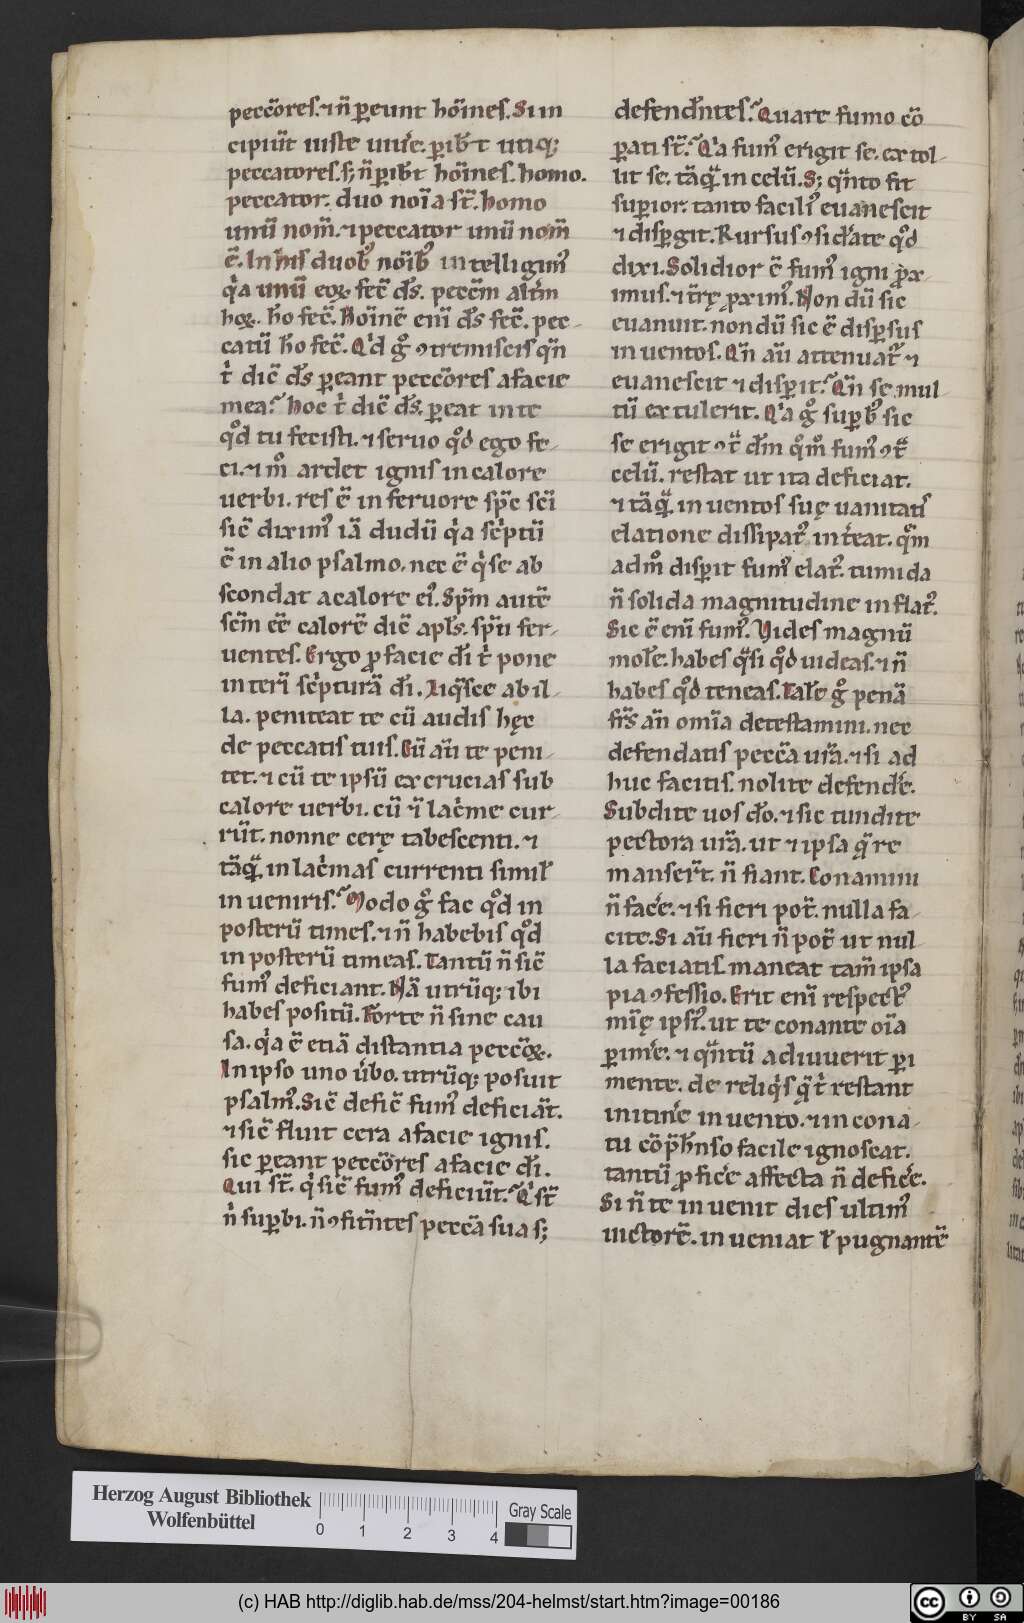 peccōres. ⁊ n̄ ꝑeunt hōines. Si in
cipiūt iuste uiuͤe. ꝑib̄t utiq;
peccatores. s; n̄ ꝑib̄t hōines. homo.
peccator. duo noīa st̄. homo
unū nom̄. ⁊ peccator unū nom̄
ē. In his duob; noīb; intelligim᷒
q̇a unū eoꝝ fec̄ d̄s. pecc̄m alt̄m
hoꝝ. h̄o fec̄. Hoīnē enī d̄s fec̄. pec-
catū h̄o fec̄. Qͥd gͦ ꝯtremiscis qn̄
t̍ dic̄ d̄s ꝑeant peccōres afacie
mea? Hoc t̍ dic̄ d̄s. ꝑeat in te
qͦd tu fecisti. ⁊ seruo qͦd ego fe-
ci. ⁊ mͦ ardet ignis in calore
uerbi. res ē in feruore sp̄c sc̄i
sic̄ dixim᷒ iā dudū q̇a sc̍ptū
ē in alio psalmo. nec ē q̇ se ab
scondat acalore ei᷒. Sp̄m autē
sc̄m ēē calorē dic̄ apl̄s. sp̄u fer-
uentes. Ergo ꝓ facie d̄i t̍ pone
interī sc̍pturā d̄i. Liq̄sce ab il-
la. peniteat te cū audis hęc
de peccatis tuis. Cū au̅ te peni-
tet. ⁊ cū te ipsū excrucias sub
calore uerbi. cū ⁊̄ lac̍me cur-
rūt. nonne cerę tabescenti. ⁊
tāq̄ in lac̍mas currenti simil̄
inueniris? Modo gͦ fac qͦd in
posterū times. ⁊ n̄ habebis qͦd
in posterū timeas. Tantū n̄ sic̄
fum᷒ deficiant. Nā utrūq; ibi
habes positū. Forte n̄ sine cau
sa. q̇a ē etiā distantia peccōꝝ.
In ipso uno u̍bo. utrūq; posuit
psalm᷒. Sic̄ defic̄ fum᷒ deficiāt.
⁊ sic̄ fluit cera afacie ignis.
sic ꝑeant peccōres afacie d̄i.
Qui st̄. q̇ sic̄ fum᷒ deficiūt? Qͥ st̄
n̍ suꝑbi. n̄ ꝯfit̄ntes peccā sua s;
defend̄ntes? Quare fumo cō
ꝑati st̄? Qͥa fum᷒ erigit se. extol-
lit se. tāq̄ in celū. S; qn̄to fit
suꝑior. tanto facili᷒ euanescit
⁊ disꝑgit. Rursus ꝯsid̄ate qͦd
dixi. Solidior ē fum᷒ igni ꝓx-
imus. ⁊ t̄rę ꝓxim᷒. Non dū sic
euanuit. non dū sic ē disꝑsus
in uentos. Qn̄ au̅ attenuat᷑ ⁊
euanescit ⁊ disꝑit? Qn̄ se mul
tū extulerit. Qͥa gͦ suꝑb᷒ sic
se erigit ꝯt̄ d̄m qͦmͦ fum᷒ ꝯt̄
celū. restat ut ita deficiat.
⁊ tāq̄ in uentos suę uanitatis
elatione dissipat᷒ int̍eat. qͣm
admͦ disꝑit fum᷒ elat᷒. tumida
n̄ solida magnitudine inflat᷒.
Sic ē enī fum᷒. Vides magnū
mol̄e. habes q̄si qͦd uideas. ⁊ n̄
habes qͦd teneas. Tal̄e gͦ penā
fr̄s an̄ omīa detestamini. nec
defendatis peccā ur̄a. ⁊ si ad
huc facitis. nolite defend̍e.
Subdite uos d̄o. ⁊ sic tundite
pectora ur̄a. ut ⁊ ipsa q̄ re
manser̄t. n̄ fiant. Conamini
n̄ fac̍e. ⁊ si fieri pot̄. nulla fa-
cite. Si au̅ fieri n̄ pot̄ ut nul
la faciatis. maneat tam̄ ipsa
pia ꝯfessio. Erit enī respect᷒
mīę ipsi᷒. ut te conante oīa
ꝑim̍e. ⁊ qn̄tū adiuuerit ꝑi
mente. de reliq̇s q̄ t̍ restant
in itin̍e inuento. ⁊ in cona-
tu cōp̄h̄nso facile ignoscat.
tantū ꝓfic̍e affecta n̄ defic̍e.
Si n̄ te inuenit dies ultim᷒
uictorē. inueniat ɫ pugnantē
Herzog August Bibliothek
Wolfenbüttel
0 1 2 3 4
Gray Scale
(c) HAB http://diglib.hab.de/mss/204-helmst/start.htm?image=00186
cc BY SA